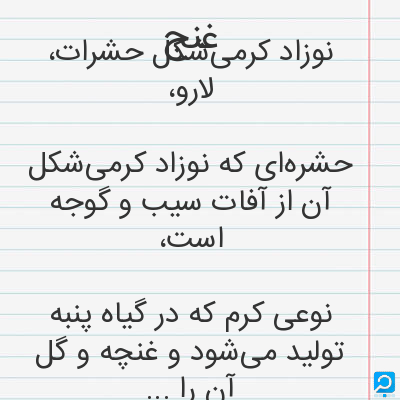 غنج
نوزاد کرمی‌شکل حشرات،
لارو،
حشره‌ای که نوزاد کرمی‌شکل
آن از آفات سیب و گوجه
است،
نوعی کرم که در گیاه پنبه
تولید می‌شود و غنچه و گل
آن را ...